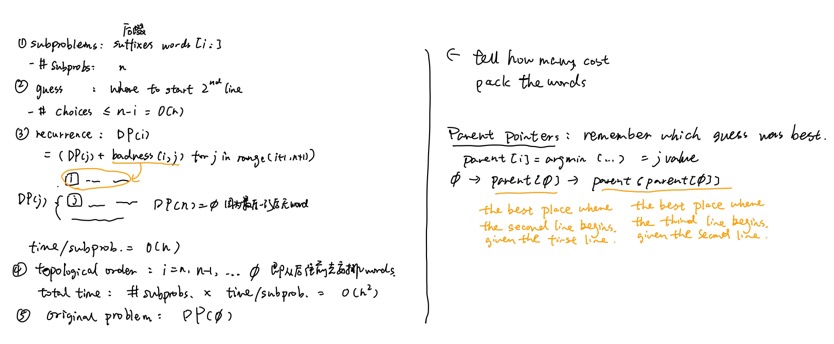 后缀
① subproblems: suffixes words [i:]
- # subprobs: n
② guess : where to start 2nd line
- # choices ≤ n-i = O(n)
③ recurrence: DP(i)
= (DP(j) + badness(i,j) for j in range(i+1, n+1))
DP(j) { j DP(n) = φ 因为最后一行后无word
time/subprob. = O(n)
④ topological order : i = n, n-1, ... φ 即从后往前去排words.
total time : # subprobs. × time/subprob. = O(n²)
⑤ original problem : DP(φ)
← tell how many cost
pack the words
Parent Pointers : remember which guess was best.
parent[i] = argmin (...) = j value
φ → parent[φ] → parent(parent[φ])
the best place where the second line begins, given the first line.
the best place where the third line begins, given the second line.